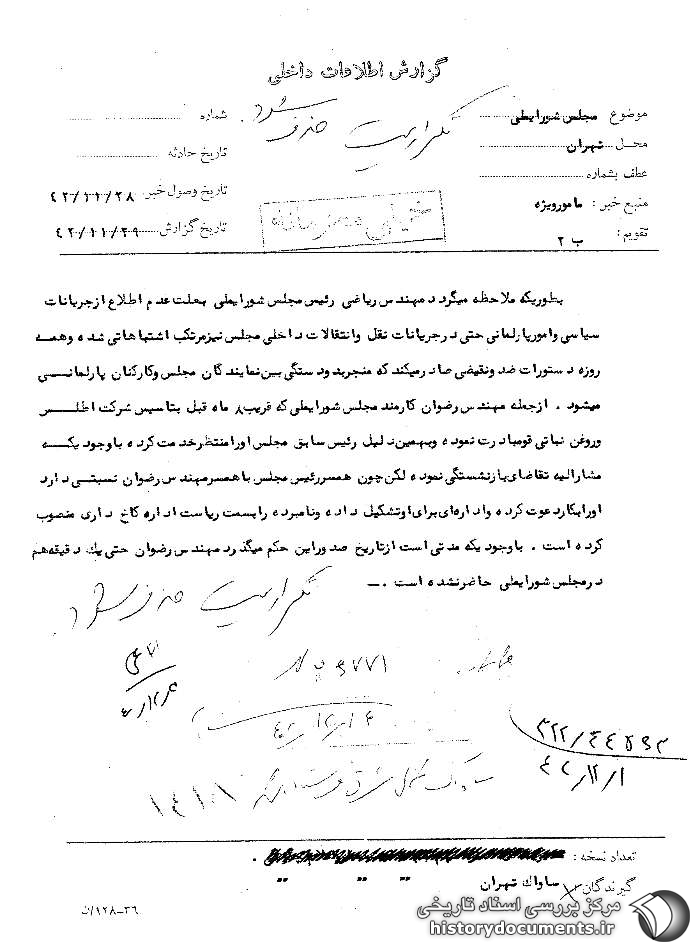 گزارش اطلاعات داخلی
موضوع مجلس شورایملی
شماره
تکراریست حذف شود
محل تهران
تاریخ حادثه
عطف بشماره
تاریخ وصول خبر ۴۲/۱۱/۲۸
منبع خبر: مامورویژه
خیلی محرمانه
تاریخ گزارش ۴۲/۱۱/۲۹
تقویم: ب ۲
بطوریکه ملاحظه میگردد مهندس ریاضی رئیس مجلس شورایملی بعلت عدم اطلاع ازجریانات
سیاسی وامورپارلمانی حتی درجریانات نقل وانتقالات داخلی مجلس نیزمرتکب اشتباهاتی شده وهمه
روزه دستورات ضد ونقیضی صادرمیکند که منجربدودستگی بین نمایندگان مجلس وکارکنان پارلمانی
میشود . ازجمله مهندس رضوان کارمند مجلس شورایملی که قریب ۸ ماه قبل بتاسیس شرکت اطلس
وروغن نباتی قومبادرت نموده وبهمین دلیل رئیس سابق مجلس اورامنتظرخدمت کرده باوجودیکه
مشارالیه تقاضای بازنشستگی نموده لکن چون همسررئیس مجلس باهمسرمهندس رضوان نسبتی دارد
اورابکاردعوت کرده واداره‌ای برای اوتشکیل داده ونامبرده رابسمت ریاست اداره کاخ داری منصوب
کرده است . باوجودیکه مدتی است ازتاریخ صدوراین حکم میگذرد مهندس رضوان حتی یك دقیقه هم
درمجلس شورایملی حاضرنشده است .ــ
تکراریست حذف شود
۴۲/۱۲/۱
تعداد نسخه :
گیرندگان ساواك تهران
۳۶-۱۲۸/ث
مرکز بررسی اسناد تاریخی
historydocuments.ir